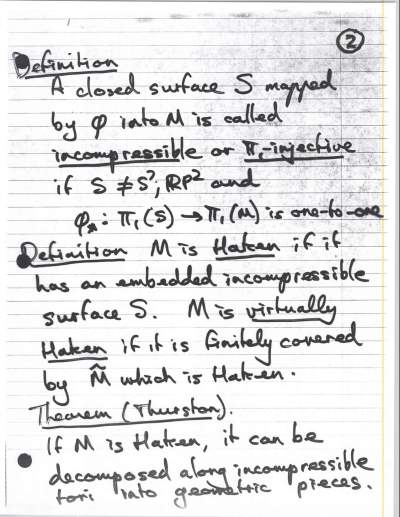 ②
Definition
A closed surface S mapped
by φ into M is called
incompressible or π₁-injective
if S ≠ S², RP² and
φ*: π₁(S) → π₁(M) is one-to-one
Definition M is Haken if it
has an embedded incompressible
surface S. M is virtually
Haken if it is finitely covered
by M̃ which is Haken.
Theorem (Thurston).
If M is Haken, it can be
decomposed along incompressible
tori into geometric pieces.